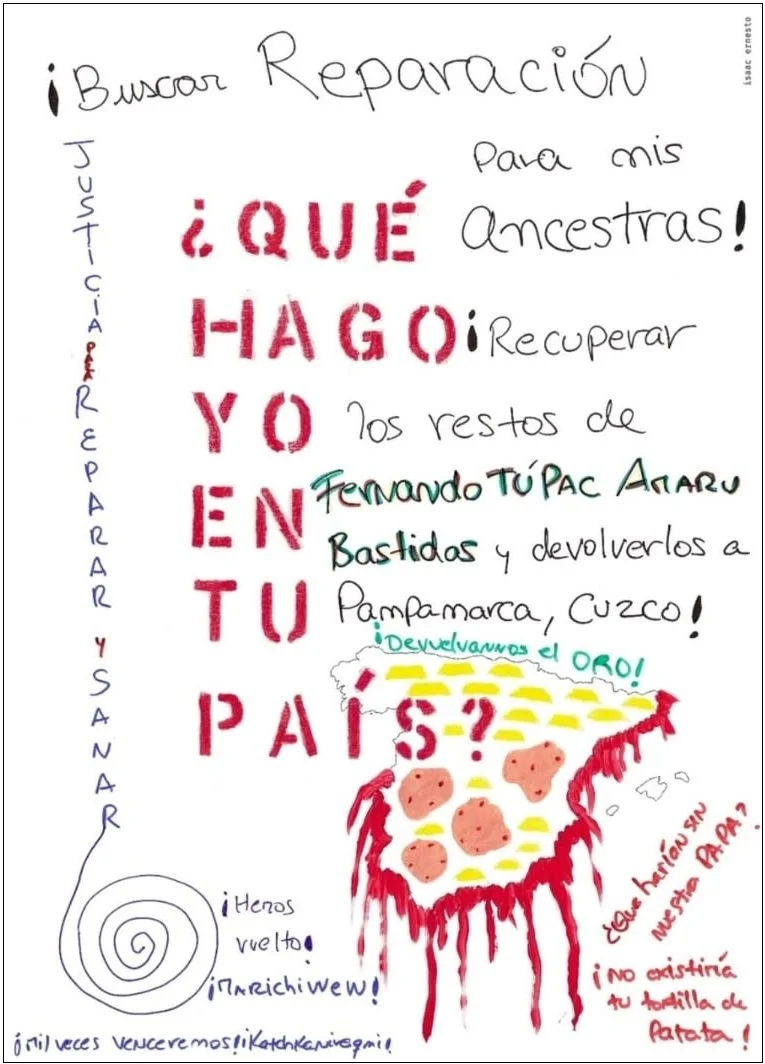 isaac ernesto
¡Buscar Reparación
para mis
ancestras!
JUSTICIA PARA REPARAR Y SANAR
¿QUÉ
HAGO
YO
EN
TU
PAÍS?
¡Recuperar
los restos de
Fernando TÚPAC AMARU
Bastidas y devolverlos a
Pampamarca, Cuzco!
¡Devuelvannos el ORO!
¿Que harían sin
nuestra PAPA?
¡No existiría
tu tortilla de
Patata!
¡Hemos
vuelto!
¡MARichiweW!
¡Mil veces venceremos!